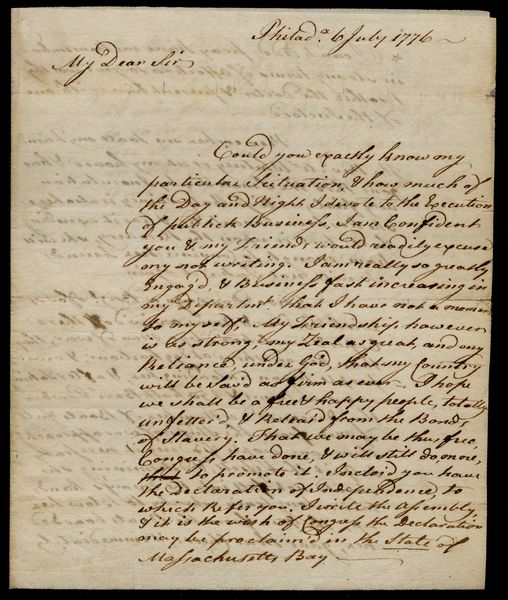 Philad.a 6 July 1776
My Dear Sir
Could you exactly know my
particular Scituation, & how much of
the Day and Night I devote to the Execution
of publick Business, I am Confident
you & my Friends would readily excuse
my not writing. I am really so greatly
Engag'd, & Business fast increasing in
my Departmt. that I have not a moment
to my self. My Friendship however
is as strong, my Zeal as great, and my
Reliance, under God, that my Country
will be Sav'd as firm as ever. I hope
we shall be a free & happy people, totally
unfetter'd, & Releas'd from the Bonds
of Slavery. That we may be thus free,
Congress have done, & will still do more,
to promote it. Inclos'd you have
the Declaration of Independence to
which Refer you. I write the Assembly,
& it is the wish of Congress the Declaration
may be proclaim'd in the State of
Massachusetts Bay